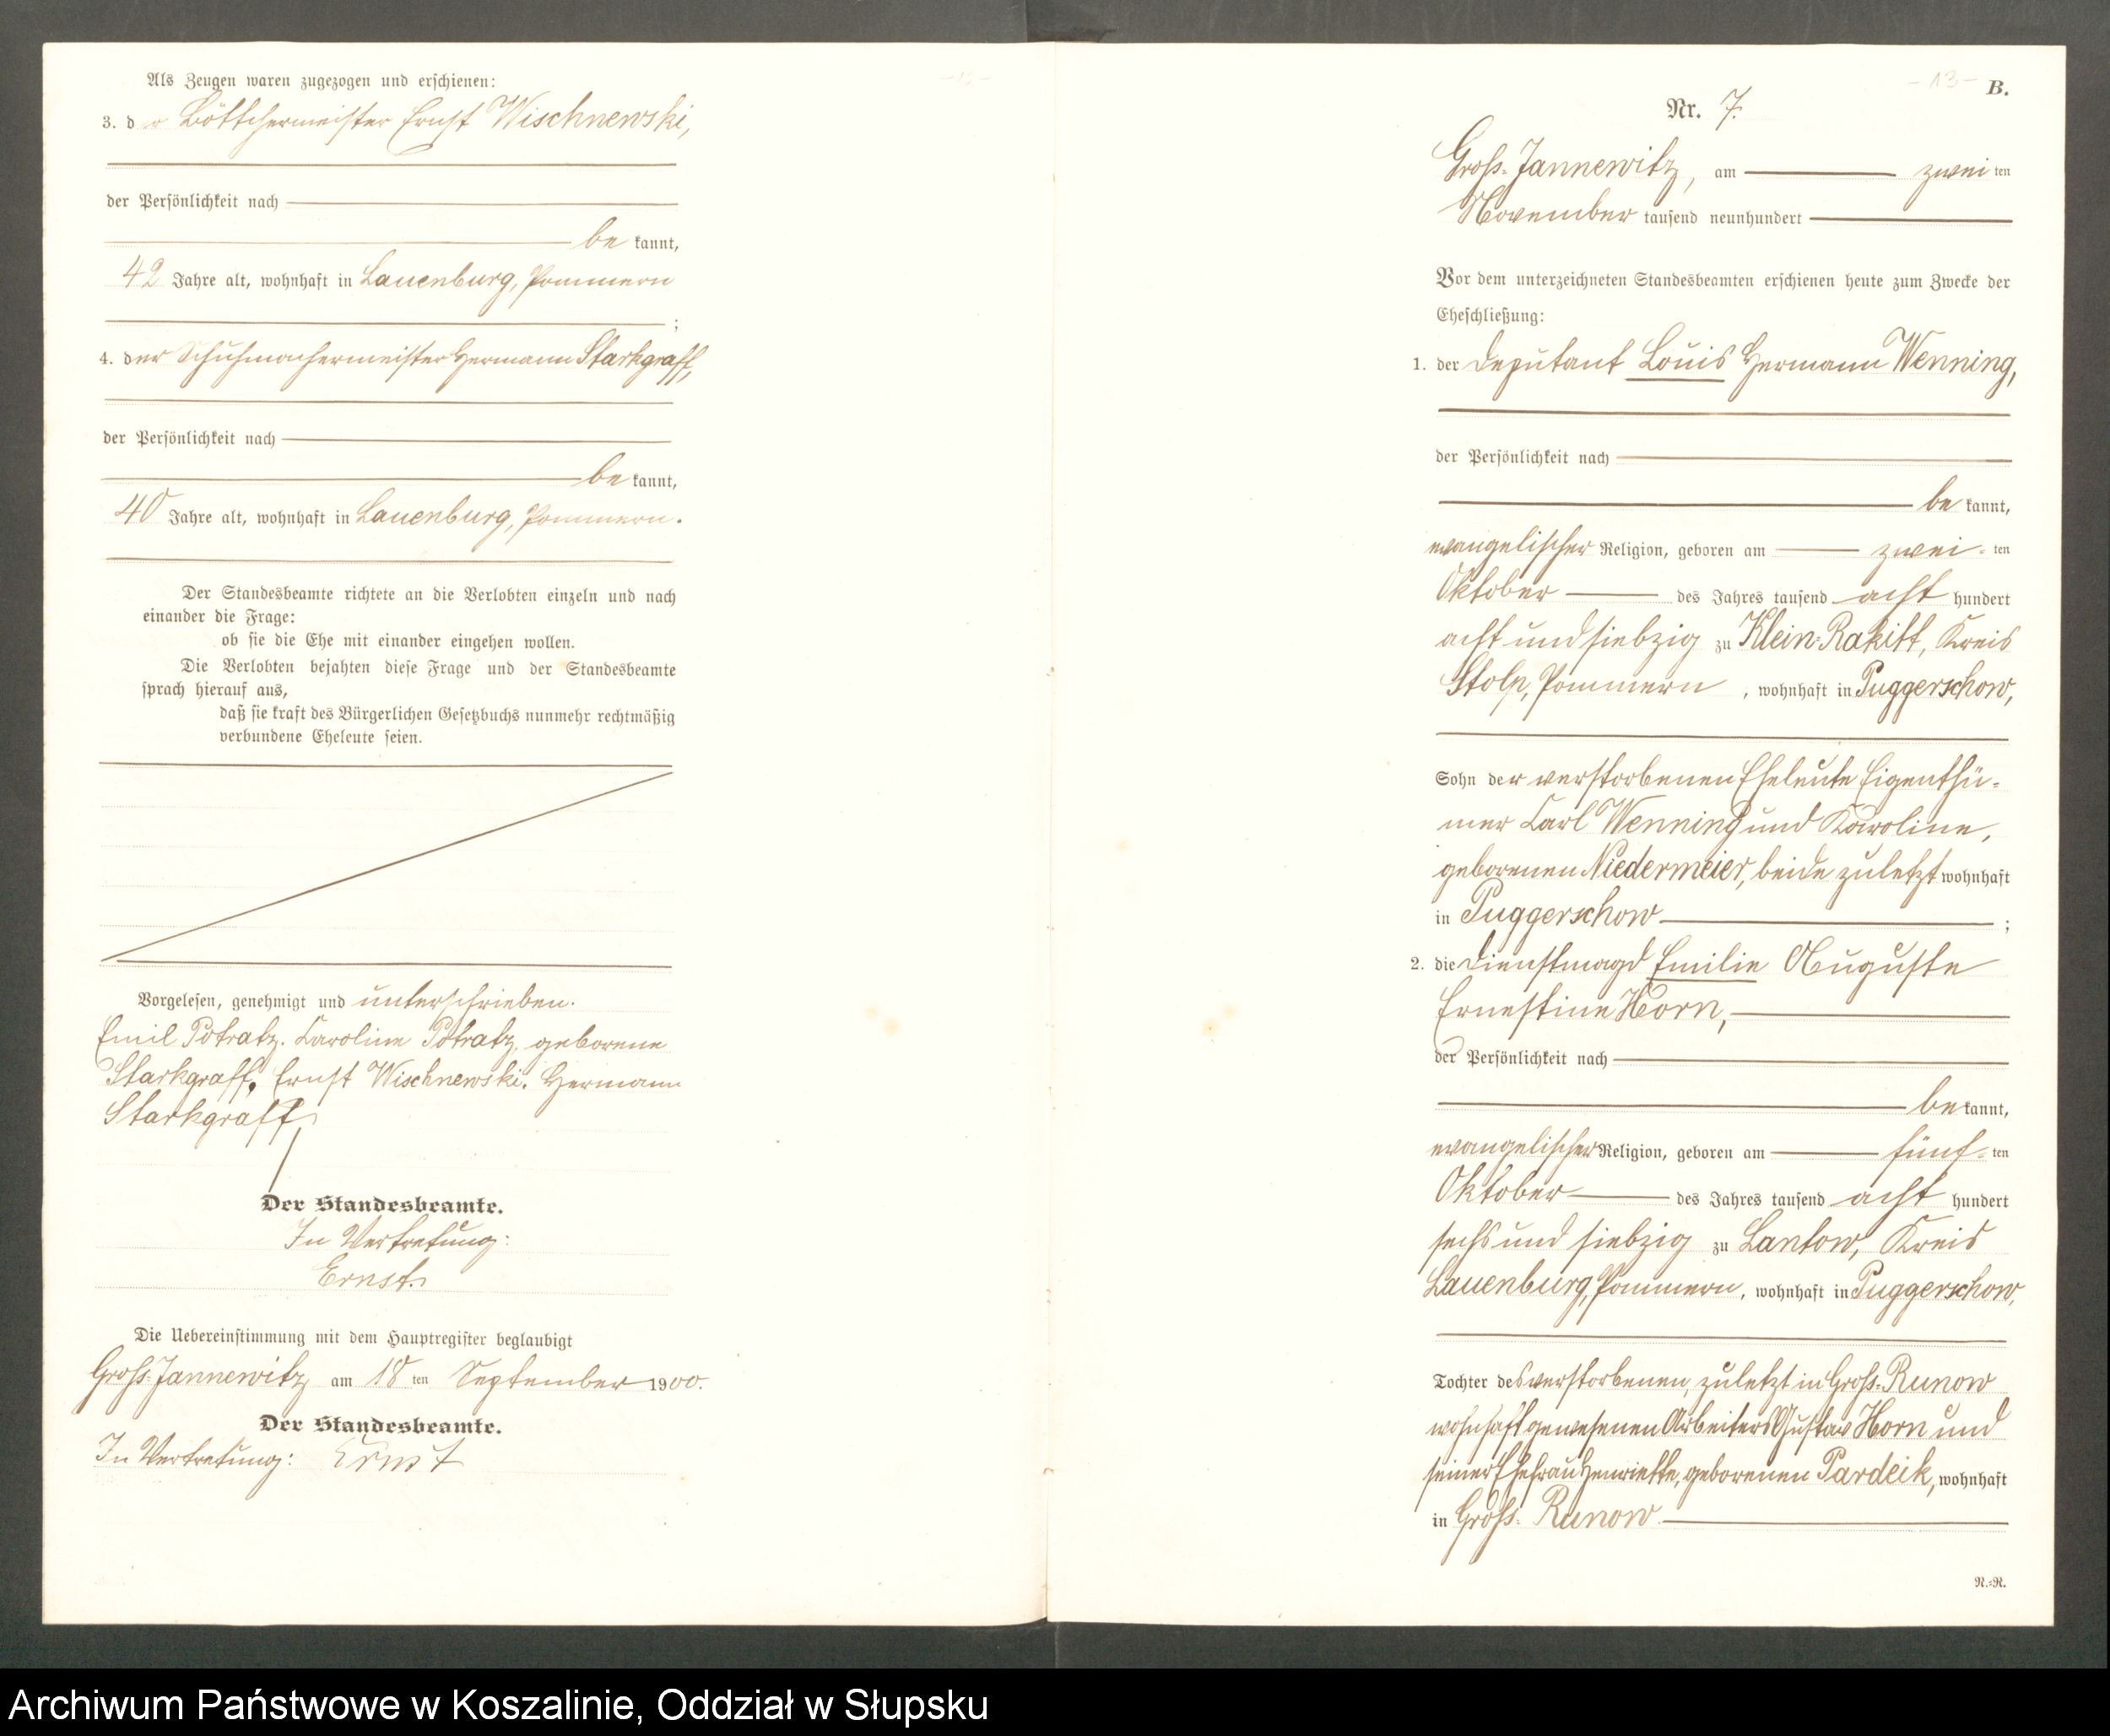 Als Zeugen waren zugezogen und erschienen:
3. der Böttchermeister Ernst Wischnewski,
der Persönlichkeit nach
be kannt,
42 Jahre alt, wohnhaft in Lauenburg, Pommern
;
4. der Schuhmachermeister Hermann Starkgraff,
der Persönlichkeit nach
be kannt,
40 Jahre alt, wohnhaft in Lauenburg, Pommern.
Der Standesbeamte richtete an die Verlobten einzeln und nach
einander die Frage:
ob sie die Ehe mit einander eingehen wollen.
Die Verlobten bejahten diese Frage und der Standesbeamte
sprach hierauf aus,
daß sie kraft des Bürgerlichen Gesetzbuchs nunmehr rechtmäßig
verbundene Eheleute seien.
Vorgelesen, genehmigt und unterschrieben.
Emil Potratz. Caroline Potratz, geborene
Starkgraff. Ernst Wischnewski. Hermann
Starkgraff
Der Standesbeamte.
In Vertretung:
Ernst.
Die Uebereinstimmung mit dem Hauptregister beglaubigt
Groß-Jannewitz am 18 ten September 1900.
Der Standesbeamte.
In Vertretung: Ernst
- 13 - B.
Nr. 7.
Groß-Jannewitz, am zwei ten
November tausend neunhundert
Vor dem unterzeichneten Standesbeamten erschienen heute zum Zwecke der
Eheschließung:
1. der Deputant Louis Hermann Wenning,
der Persönlichkeit nach
be kannt,
evangelischer Religion, geboren am zwei- ten
Oktober des Jahres tausend acht hundert
acht und siebzig zu Klein-Rakitt, Kreis
Stolp, Pommern, wohnhaft in Puggerschow,
Sohn der verstorbenen Eheleute Eigenthü-
mer Carl Wenning und Karoline,
geborenen Niedermeier, beide zuletzt wohnhaft
in Puggerschow ;
2. die Dienstmagd Emilie Auguste
Ernestine Horn,
der Persönlichkeit nach
be kannt,
evangelischer Religion, geboren am fünf- ten
Oktober des Jahres tausend acht hundert
sechs und siebzig zu Lantow, Kreis
Lauenburg, Pommern, wohnhaft in Puggerschow,
Tochter des verstorbenen, zuletzt in Groß-Runow
wohnhaft gewesenen Arbeiters Gustav Horn und
seiner Ehefrau Henriette, geborenen Pardeik, wohnhaft
in Groß-Runow
N.-R.
Archiwum Państwowe w Koszalinie, Oddział w Słupsku